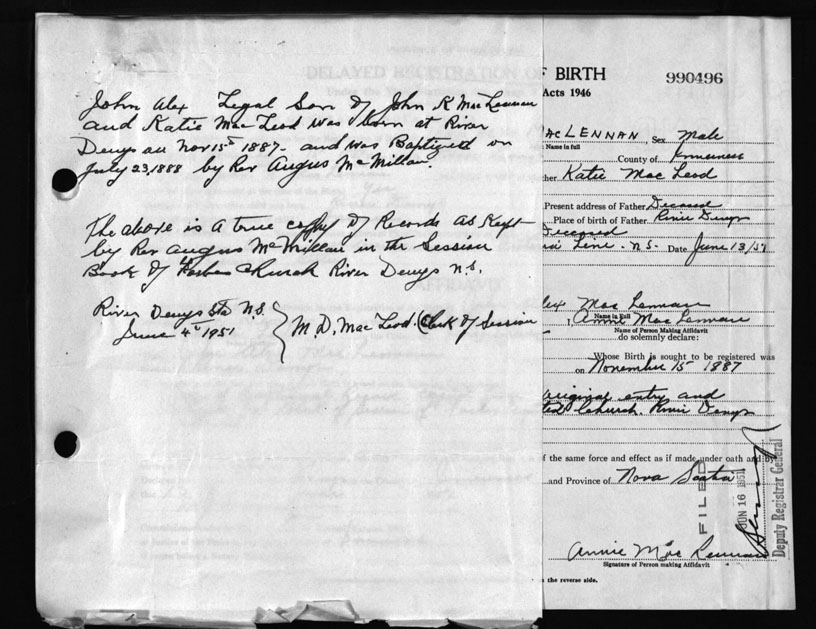 John Alex Legal Son of John K MacLennan
and Katie MacLeod was born at River
Denys on Nov 15th 1887 - and was Baptized on
July 23, 1888 by Rev Angus McMillan.
The above is a true copy of Records as Kept
by Rev Angus McMillan in the Session
Book of Forbes Church River Denys N.S.
River Denys Sta N.S.
June 4th 1951
M. D. MacLeod. Clerk of Session
DELAYED REGISTRATION OF BIRTH
990496
Acts 1946
MACLENNAN, Sex Male
Name in full
County of Inverness
Katie MacLeod
Present address of Father Deceased
Place of birth of Father River Denys
Deceased
N.S. Date June 13/51
Alex MacLennan
Name in Full
, Annie MacLennan
Name of Person Making Affidavit
do solemnly declare:
Whose Birth is sought to be registered was
on November 15th 1887
original entry and
Church. River Denys
of the same force and effect as if made under oath and by
and Province of Nova Scotia
FILED
JUN 16 1951
Deputy Registrar General
Annie MacLennan
Signature of Person making Affidavit
the reverse side.